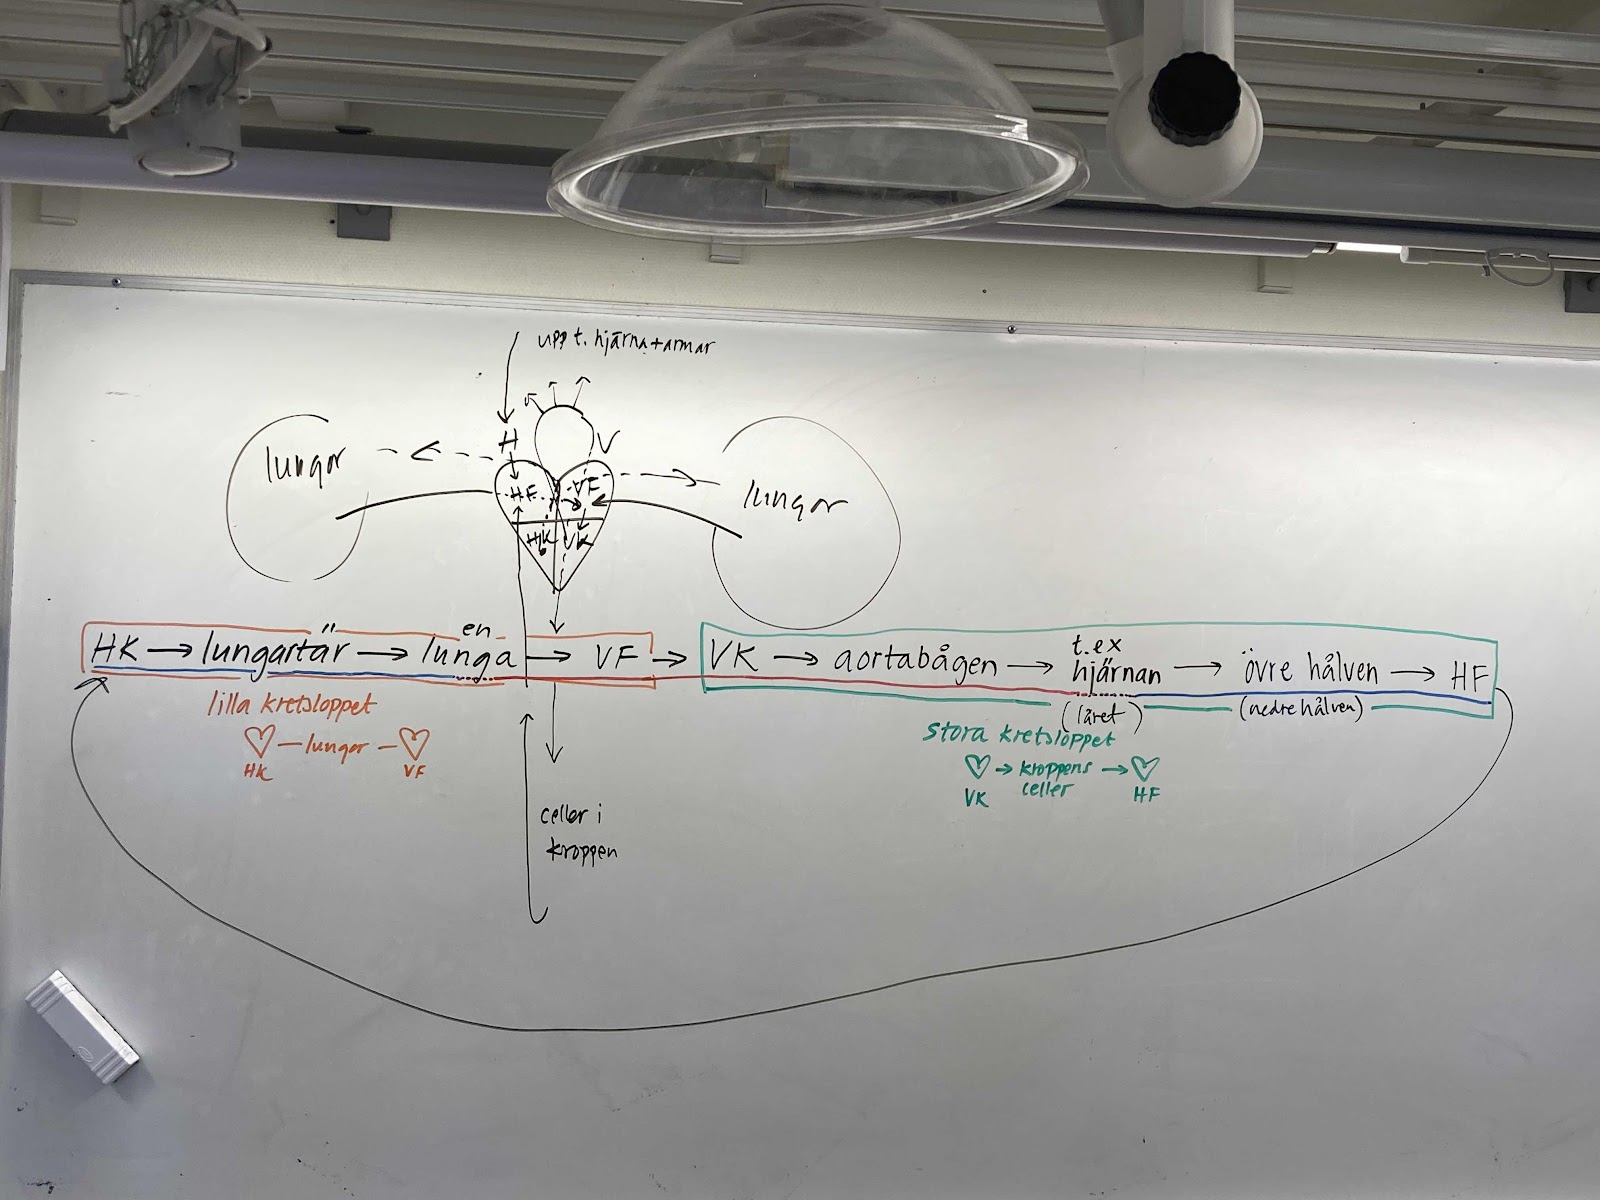 upp t. hjärna+armar
H V
lungor
HF VF
lungor
HK VK
HK → lungartär → en lunga → VF → VK → aortabågen → t.ex hjärnan → övre hålven → HF
(låret) (nedre hålven)
lilla kretsloppet
♡ – lungor – ♡
HK VF
stora kretsloppet
♡ → kroppens celler → ♡
VK HF
celler i
kroppen